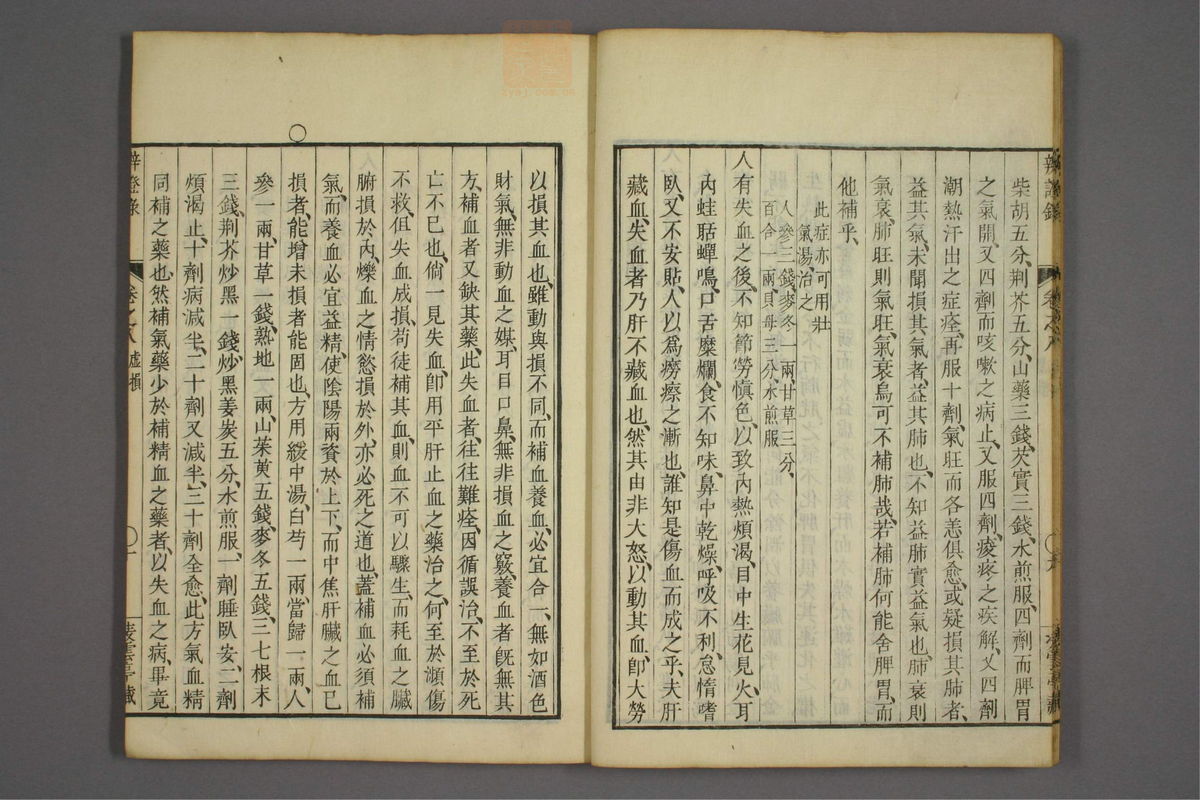 柴胡五分、荆芥五分、山藥三錢、芡實三錢、水煎服、四劑而脾胃
之氣開、又四劑而咳嗽之病止、又服四劑、痠疼之疾解、又四劑
潮熱汗出之症痊、再服十劑、氣旺而各恙俱愈、或疑損其肺者、
益其氣、未聞損其氣者、益其肺也、不知益肺實益氣也、肺衰則
氣衰、肺旺則氣旺、氣衰烏可不補肺哉、若補肺何能舍脾胃、而
他補乎、
此症亦可用壯
氣湯治之
人參三錢、麥冬一兩、甘草三分、
百合一兩、貝母三分、水煎服
人有失血之後、不知節勞愼色、以致內熱煩渴、目中生花見火、耳
內蛙聒蟬鳴、口舌糜爛、食不知味、鼻中乾燥、呼吸不利、怠惰嗜
臥、又不安貼、人以爲癆瘵之漸也、誰知是傷血而成之乎、夫肝
藏血、失血者乃肝不藏血也、然其由非大怒、以動其血、卽大勞
以損其血也、雖動與損不同、而補血養血、必宜合一、無如酒色
財氣、無非動血之媒、耳目口鼻、無非損血之竅、養血者旣無其
方、補血者又缺其藥、此失血者、往往難痊、因循誤治、不至於死
亡不已也、倘一見失血、卽用平肝止血之藥治之、何至於瀕傷
不救、但失血成損、苟徒補其血、則血不可以驟生、而耗血之臟
腑損於內、爍血之情慾損於外、亦必死之道也、蓋補血必須補
氣、而養血必宜益精、使陰陽兩資於上下、而中焦肝臟之血已
損者、能增未損者能固也、方用緩中湯、白芍一兩、當歸一兩、人
參一兩、甘草一錢、熟地一兩、山茱萸五錢、麥冬五錢、三七根末
三錢、荆芥炒黑一錢、炒黑姜炭五分、水煎服、一劑睡臥安、二劑
煩渴止、十劑病減半、二十劑又減半、三十劑全愈、此方氣血精
同補之藥也、然補氣藥少於補精血之藥者、以失血之病、畢竟
辛證錄
卷之八
虛損